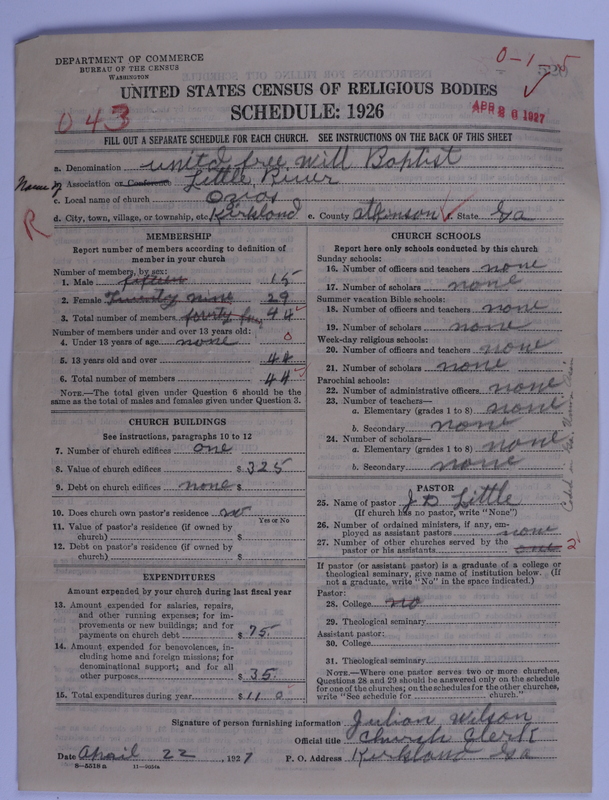 DEPARTMENT OF COMMERCE
BUREAU OF THE CENSUS
WASHINGTON
0-1
UNITED STATES CENSUS OF RELIGIOUS BODIES
SCHEDULE: 1926
APR 26 1927
043
FILL OUT A SEPARATE SCHEDULE FOR EACH CHURCH. SEE INSTRUCTIONS ON THE BACK OF THIS SHEET
a. Denomination United free Will Baptist
Name of
b. Association or Conference Little River
c. Local name of church
d. City, town, village, or township, etc Kirkland e. County atkinson f. State Ga
R
MEMBERSHIP
Report number of members according to definition of member in your church
Number of members, by sex:
1. Male fifteen 15
2. Female Twenty nine 29
3. Total number of members 44
Number of members under and over 13 years old:
4. Under 13 years of age none 0
5. 13 years old and over 44
6. Total number of members 44
NOTE.—The total given under Question 6 should be the same as the total of males and females given under Question 3.
CHURCH BUILDINGS
See instructions, paragraphs 10 to 12
7. Number of church edifices one
8. Value of church edifices $ 325
9. Debt on church edifices none $
10. Does church own pastor's residence no
Yes or No
11. Value of pastor's residence (if owned by church) $
12. Debt on pastor's residence (if owned by church) $
EXPENDITURES
Amount expended by your church during last fiscal year
13. Amount expended for salaries, repairs, and other running expenses; for improvements or new buildings; and for payments on church debt $ 75.
14. Amount expended for benevolences, including home and foreign missions; for denominational support; and for all other purposes $ 35.
15. Total expenditures during year $ 110
CHURCH SCHOOLS
Report here only schools conducted by this church
Sunday schools:
16. Number of officers and teachers none
17. Number of scholars none
Summer vacation Bible schools:
18. Number of officers and teachers none
19. Number of scholars none
Week-day religious schools:
20. Number of officers and teachers none
21. Number of scholars none
Parochial schools:
22. Number of administrative officers none
23. Number of teachers—
a. Elementary (grades 1 to 8) none
b. Secondary none
24. Number of scholars—
a. Elementary (grades 1 to 8) none
b. Secondary none
PASTOR
25. Name of pastor J D Little
(If church has no pastor, write "None")
26. Number of ordained ministers, if any, employed as assistant pastors none
27. Number of other churches served by the pastor or his assistants one 2
If pastor (or assistant pastor) is a graduate of a college or theological seminary, give name of institution below. (If not a graduate, write "No" in the space indicated.)
Pastor:
28. College no
29. Theological seminary
Assistant pastor:
30. College
31. Theological seminary
NOTE.—Where one pastor serves two or more churches, Questions 28 and 29 should be answered only on the schedule for one of the churches; on the schedules for the other churches, write "See schedule for church."
Signature of person furnishing information Julian Wilson
Official title Church Clerk
Date April 22, 1927 P. O. Address Kirkland Ga
8-5518 a